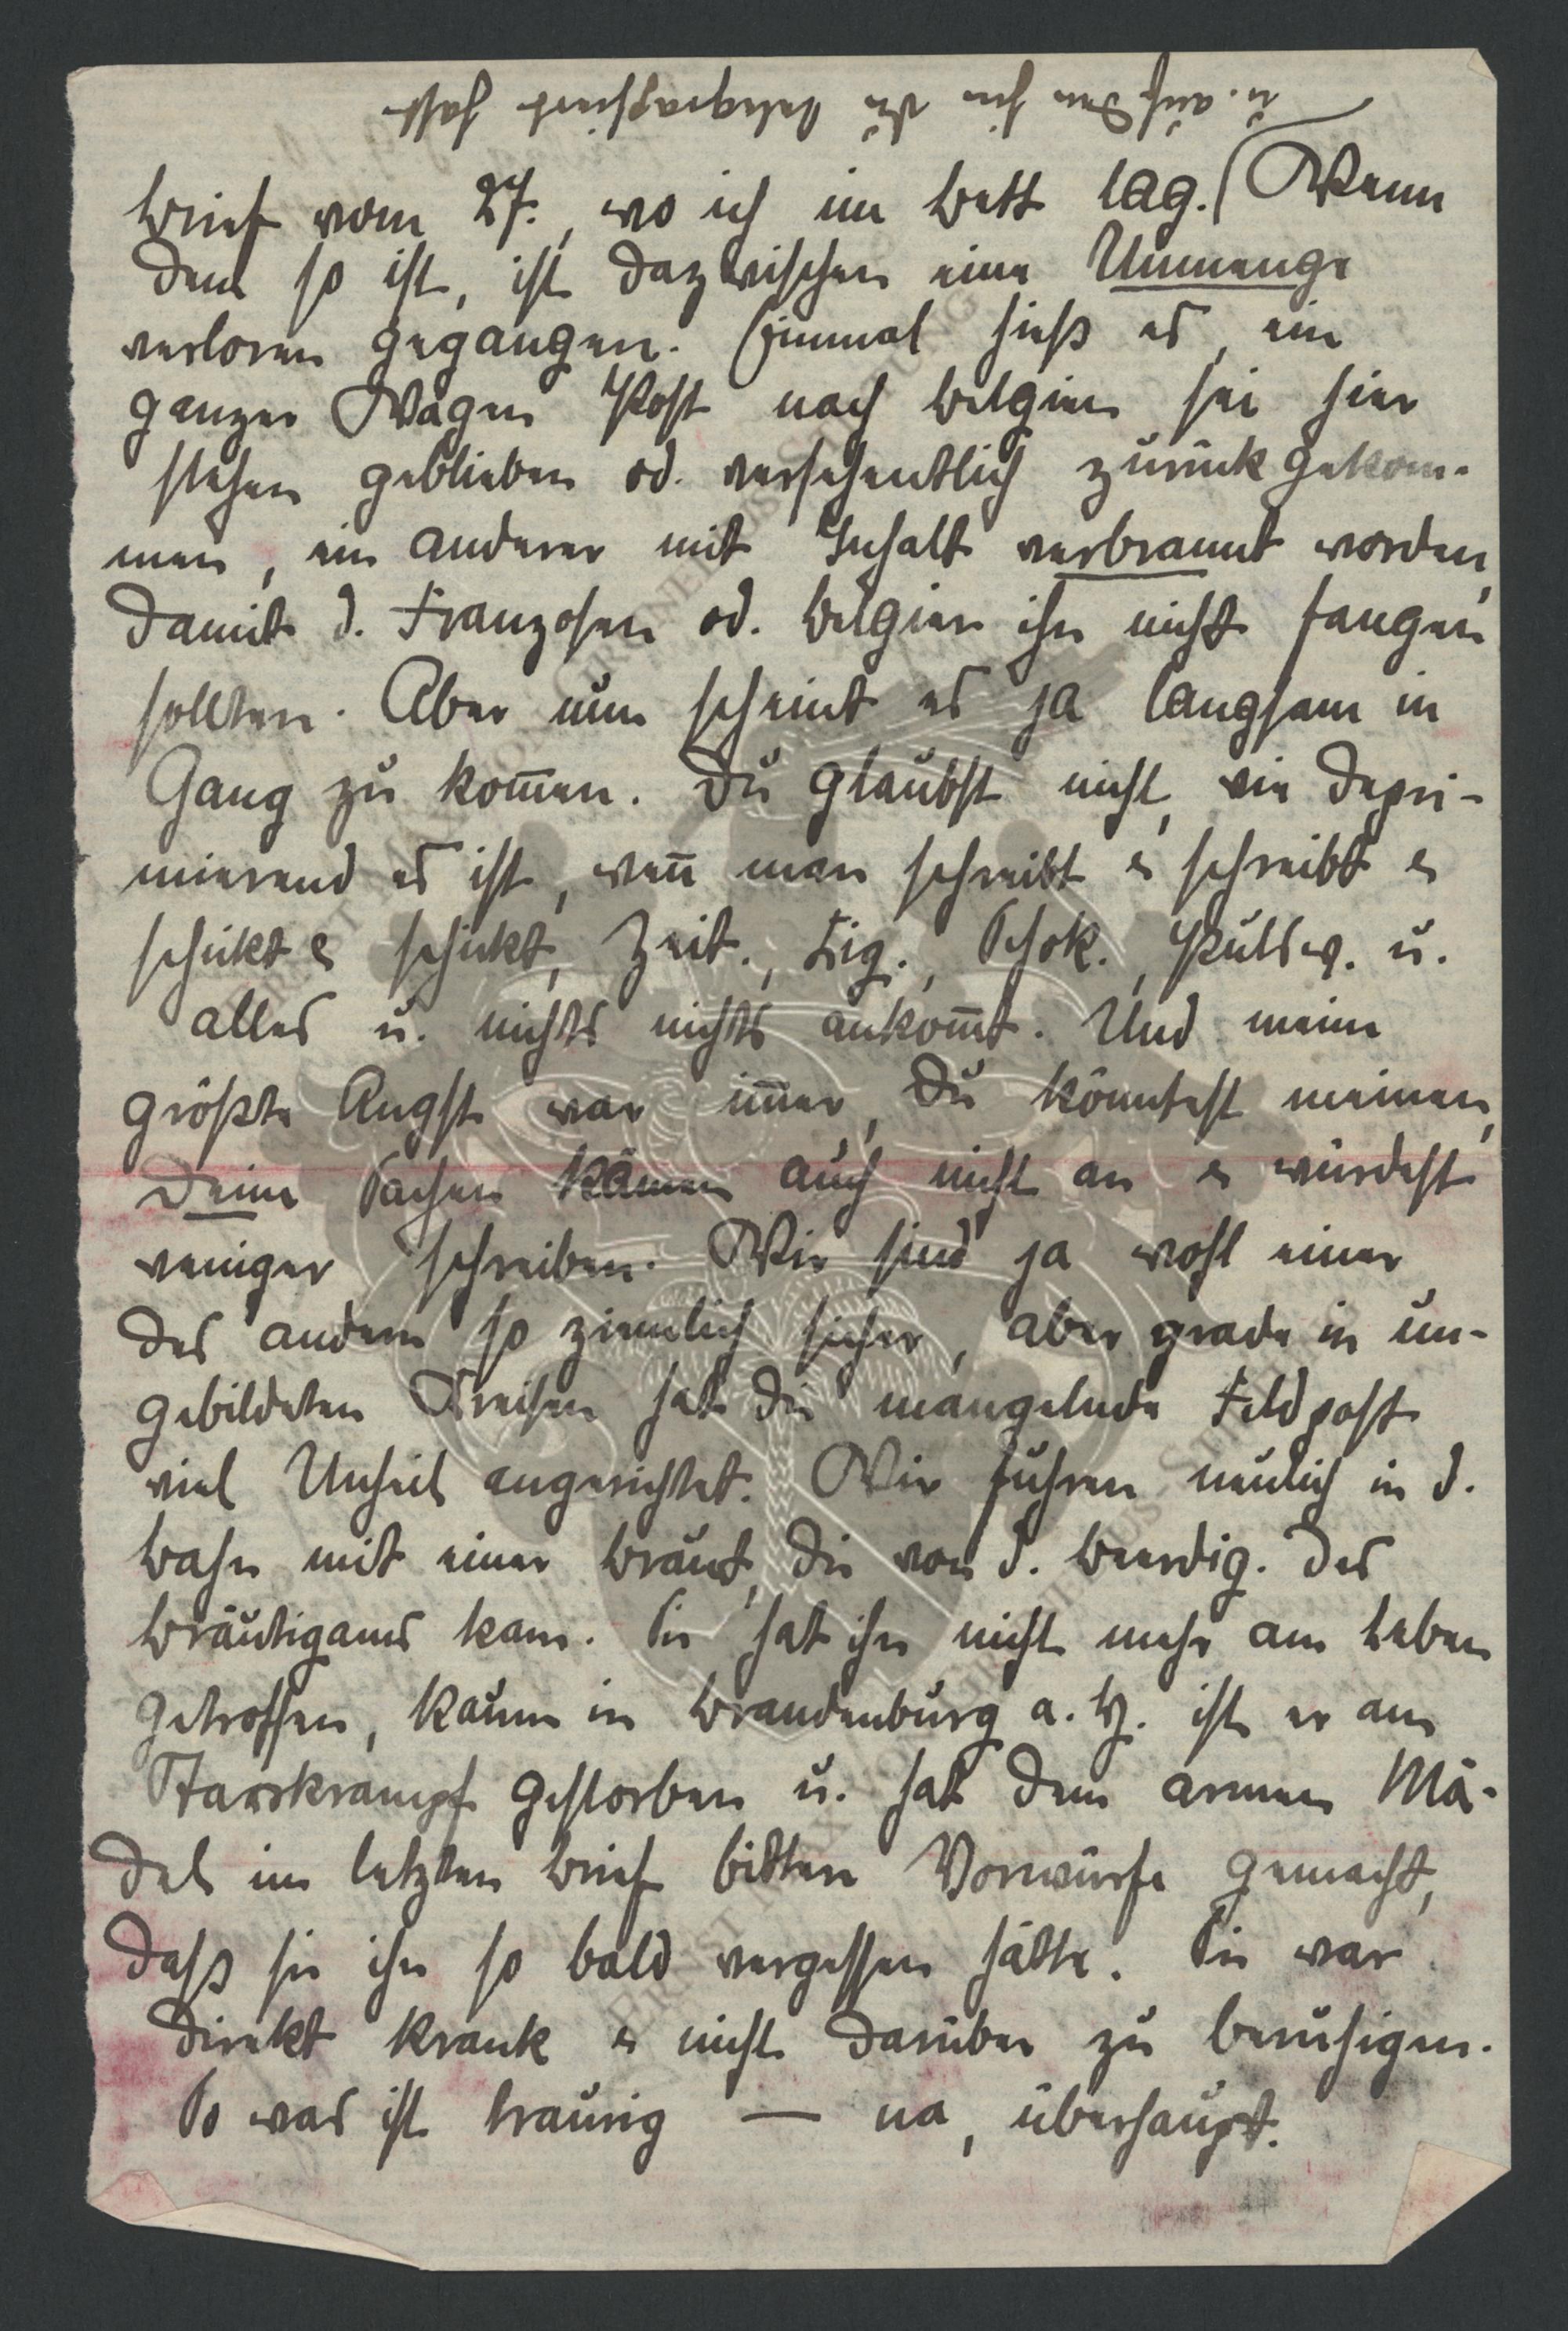 u. auf den hin du telegraphiert hast
Brief vom 27., wo ich im Bett lag. (Wenn
dem so ist, ist dazwischen eine Unmenge
verloren gegangen. Einmal hieß es, ein
ganzer Wagen Post nach Belgien sei hier
stehen geblieben od. versehentlich zurückgekom-
men, ein anderer mit Inhalt verbrannt worden,
damit d. Franzosen od. Belgier ihn nicht fangen
sollten. Aber nun scheint es ja langsam in
Gang zu kom̅en. Du glaubst nicht, wie depri-
mierend es ist, wen̅ man schreibt & schreibt &
schickt & schickt, Zeit., Zig., Schok., Pulsw. u.
alles u. nichts nichts ankom̅t. Und meine
größte Angst war im̅er, Du könntest meinen,
Deine Sachen kämen auch nicht an & würdest
weniger schreiben. Wir sind ja wohl einer
des andern so ziemlich sicher, aber grade in un-
gebildeten Kreisen hat die mangelnde Feldpost
viel Unheil angerichtet. Wir fuhren neulich in d.
Bahn mit einer Braut, die von d. Beerdig. des
Bräutigams kam. Sie hat ihn nicht mehr am Leben
getroffen, kaum in Brandenburg a. H. ist er am
Starrkrampf gestorben u. hat dem armen Mä-
del im letzten Brief bittere Vorwürfe gemacht,
daß sie ihn so bald vergessen hätte. Sie war
direkt krank & nicht darüber zu beruhigen.
So was ist traurig — na, überhaupt.